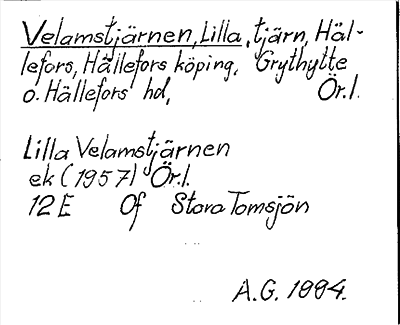 Velamstjärnen, Lilla, tjärn, Häl-
lefors, Hällefors köping, Grythytte
o. Hällefors hd, Ör.l.
Lilla Velamstjärnen
ek (1957) Ör.l.
12E Of Stora Tomsjön
A.G. 1994.